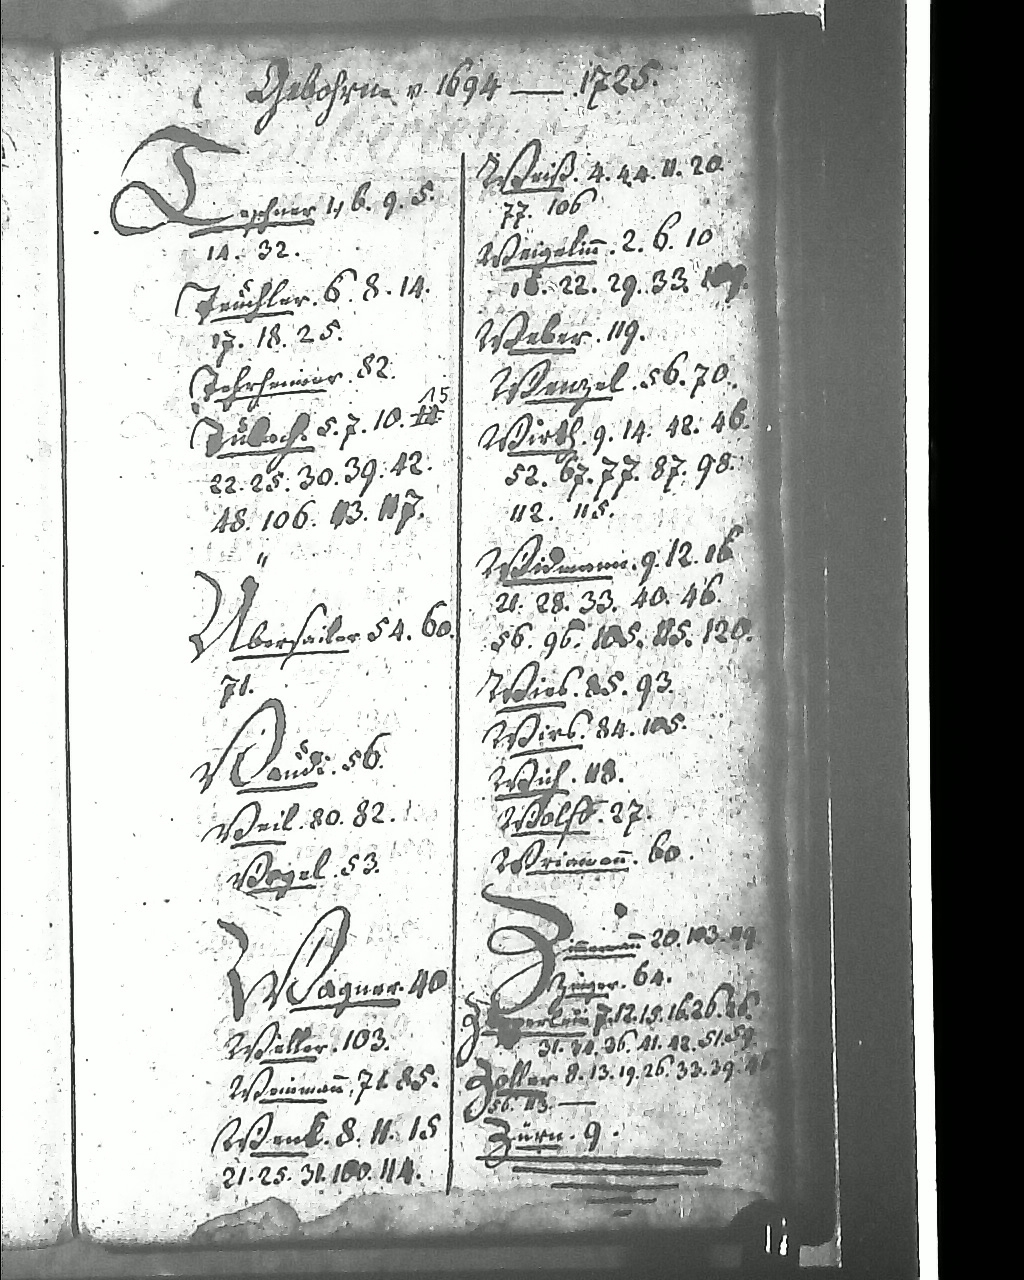 Gebohrne v. 1694 — 1725.
Teschner 1, 6. 9. 5.
14. 32.
Teüchler. 6. 8. 14.
17. 18. 25.
82.
5. 7. 10. 15
22. 25. 30. 39. 42.
48. 106. 113. 117.
Übersailer 54. 60.
71.
Vaudi. 56.
Veil. 80. 82.
Vogel. 53.
Wagner. 40
Walter. 103.
Weinmañ. 71. 85.
Wenk. 8. 11. 15
21. 25. 31. 100. 114.
Weiß. 4. 44. 11. 20.
77. 106
Weigelin̄. 2. 6. 10
16. 22. 29. 33.
Weber. 119.
Wenzel. 56. 70.
Wirth. 9. 14. 42. 46.
52. 67. 77. 87. 98.
112. 115.
Widmann. 9. 12. 16
21. 28. 33. 40. 46.
56. 96. 105. 115. 120.
Wies. 85. 93.
Wirs. 84. 105.
Wich. 118.
Wolff. 27.
60.
Zim̄ermañ 20. 103. 119.
Zinger. 64.
7. 12. 15. 16. 26. 28.
31. 34. 36. 41. 42. 51. 59.
Zoller 8. 13. 19. 26. 33. 39. 46
56. 113. —
Zürn. 9.